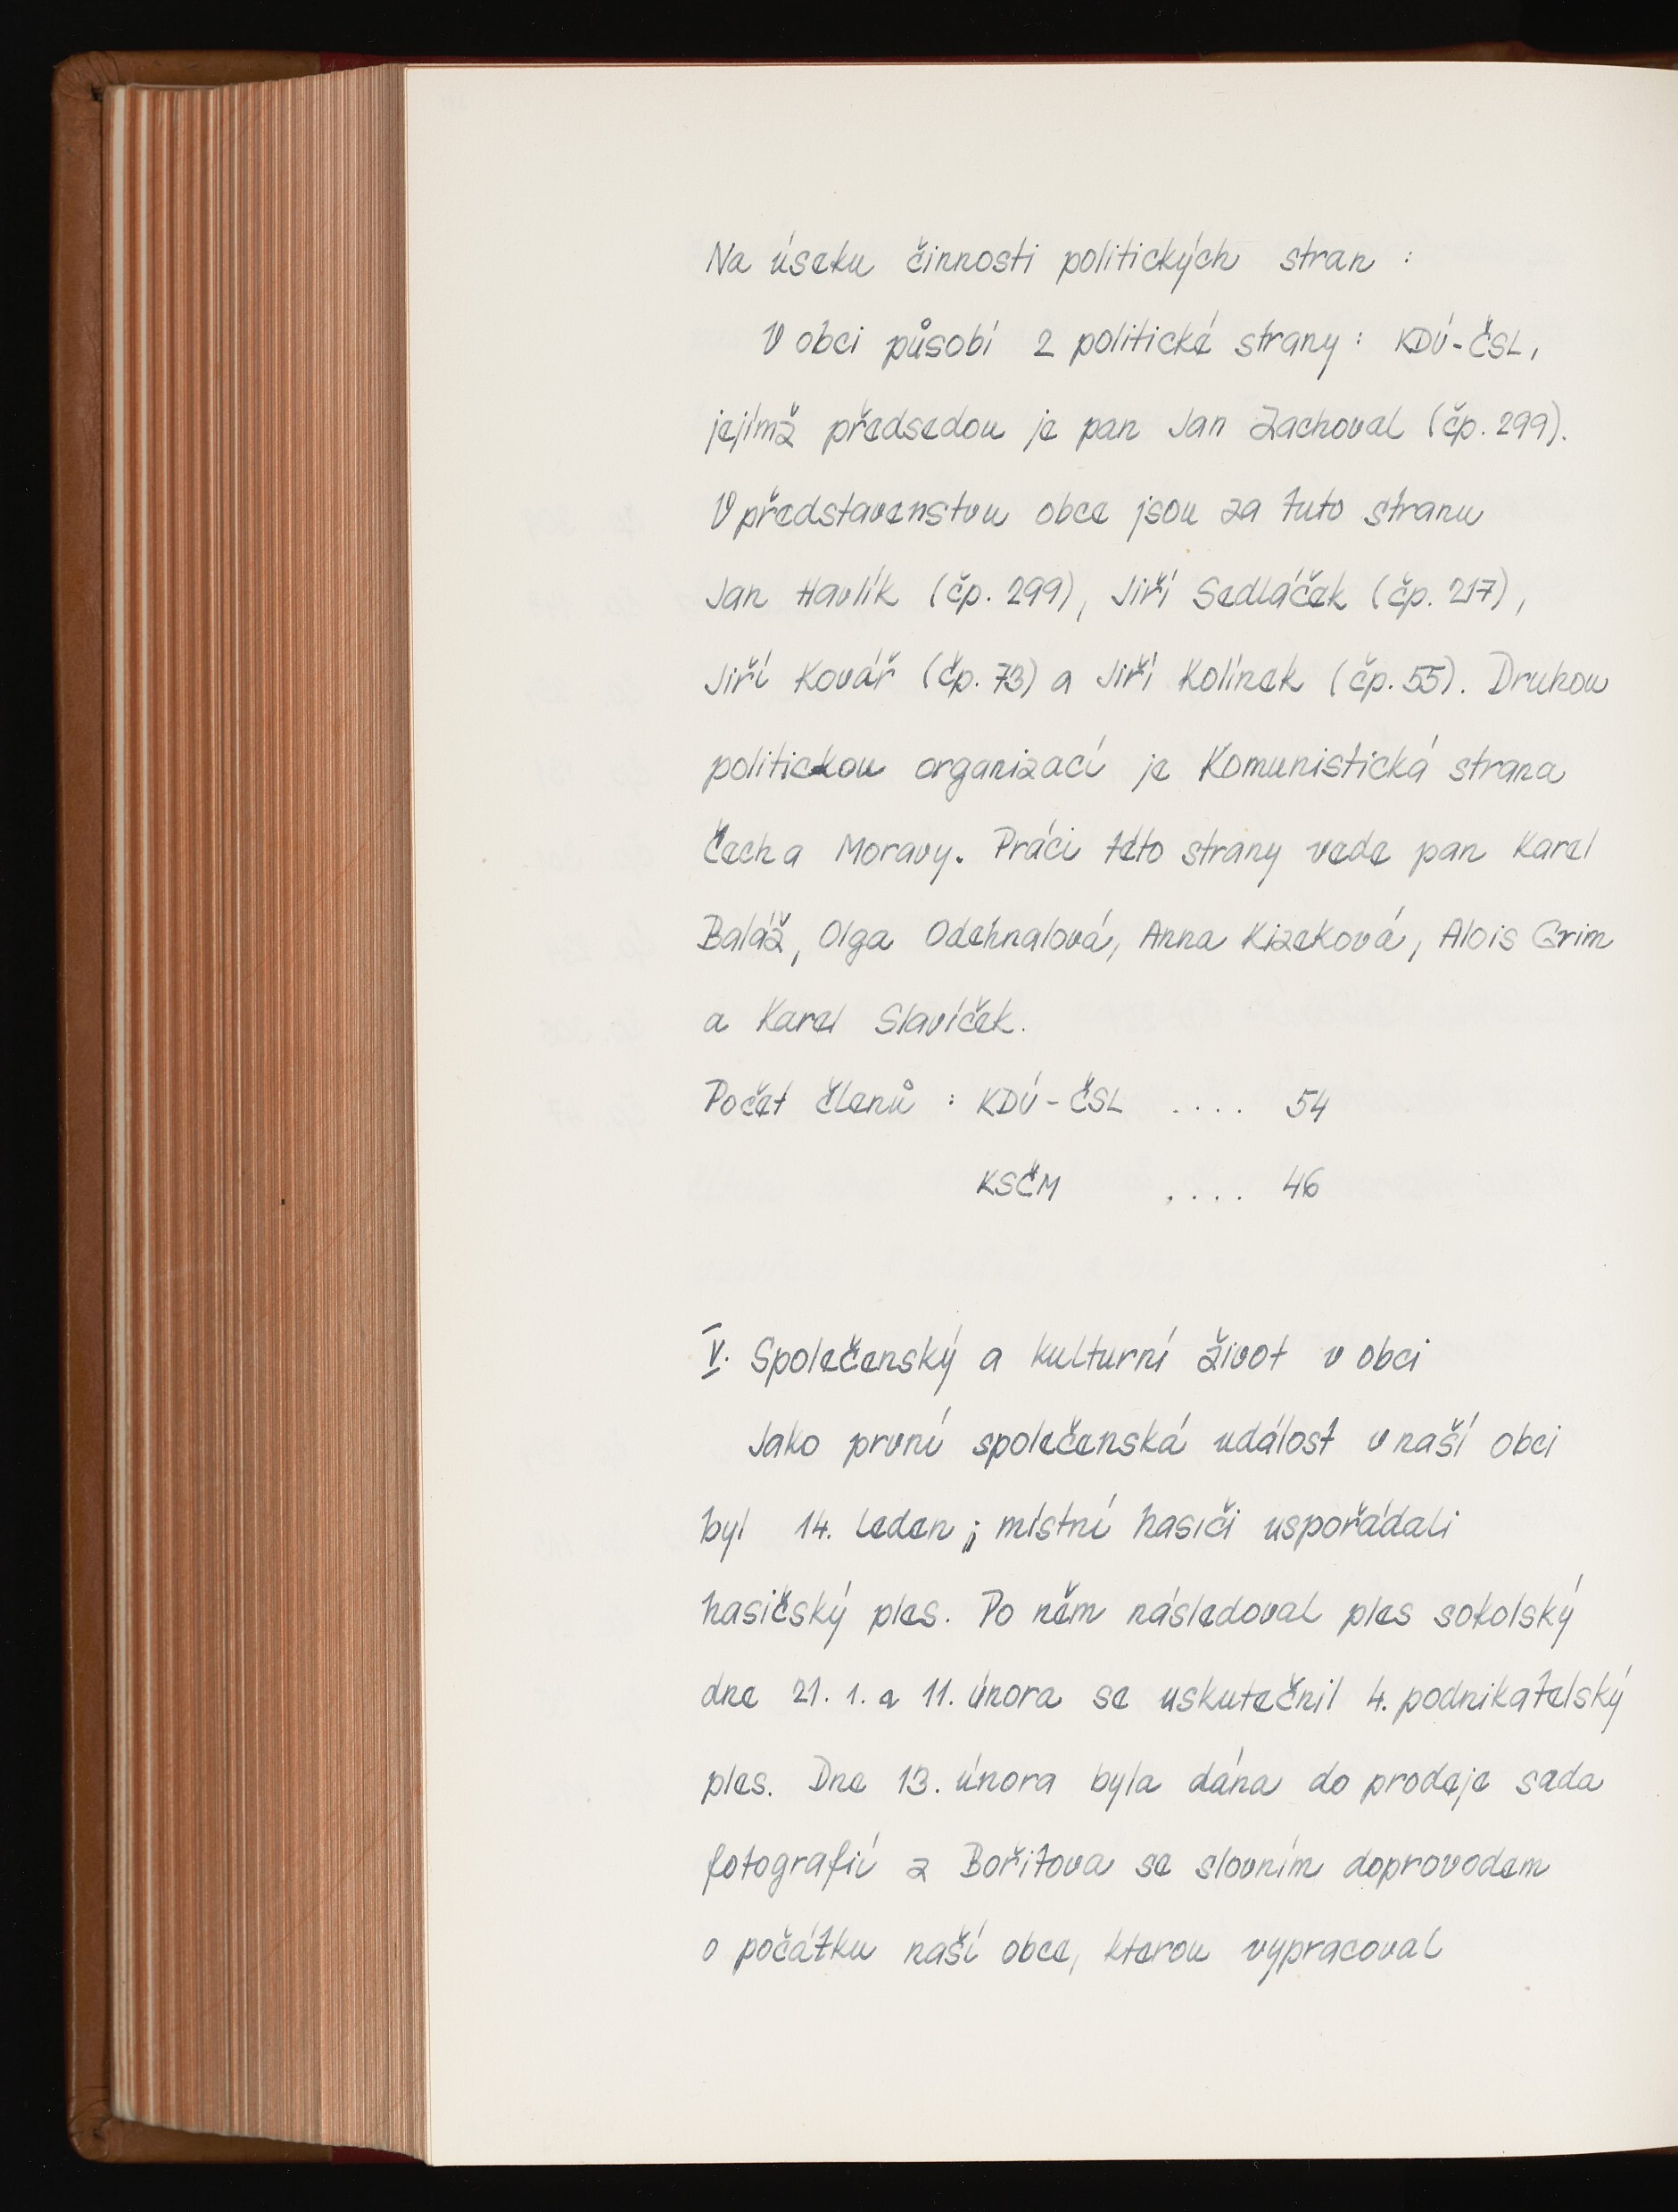 Na úseku činnosti politických stran :
V obci působí 2 politické strany : KDÚ-ČSL,
jejímž předsedou je pan Jan Zachoval (čp. 299).
V představenstvu obce jsou za tuto stranu
Jan Havlík (čp. 299), Jiří Sedláček (čp. 217),
Jiří Kovář (čp. 73) a Jiří Kolínek (čp. 55). Druhou
politickou organizací je Komunistická strana
Čech a Moravy. Práci této strany vede pan Karel
Baláž, Olga Odehnalová, Anna Kizeková, Alois Grim
a Karel Slavíček.
Počet členů : KDÚ-ČSL .... 54
KSČM .... 46
V. Společenský a kulturní život v obci
Jako první společenská událost v naší obci
byl 14. leden ; místní hasiči uspořádali
hasičský ples. Po něm následoval ples sokolský
dne 21. 1. a 11. února se uskutečnil 4. podnikatelský
ples. Dne 13. února byla dána do prodeje sada
fotografií z Bořitova se slovním doprovodem
o počátku naší obce, kterou vypracoval